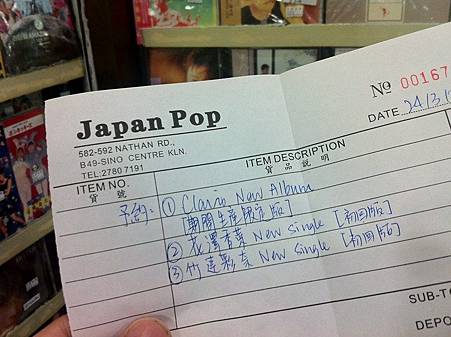 Japan Pop
582-592 NATHAN RD.,
B49-SINO CENTRE KLN.
TEL:2780 7191
Nº 00167
DATE 24/3/1
ITEM NO.
貨 號
ITEM DESCRIPTION
貨 品 說 明
予約: ① Claris New Album
[期間生産限定版]
② 花澤香菜 New Single [初回版]
③ 竹達彩奈 New Single [初回版]
SUB-T
DEPO